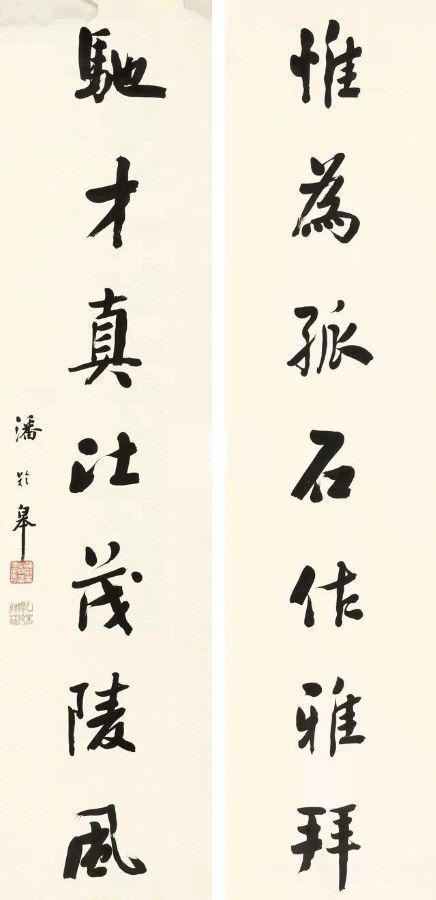 惟為孤石作雅拜
馳才真比茂陵風
潘齡皋